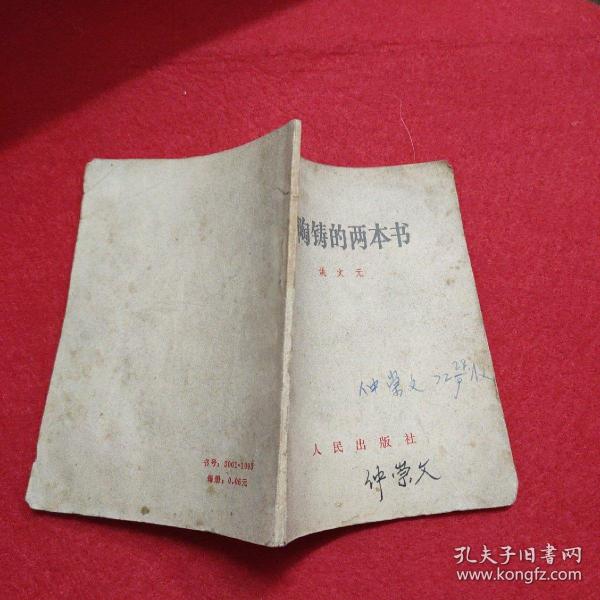 陶铸的两本书
姚文元
仲崇文
人民出版社
仲崇文
书号：3001·1093
每册：0.06元
孔夫子旧书网
www.kongfz.com